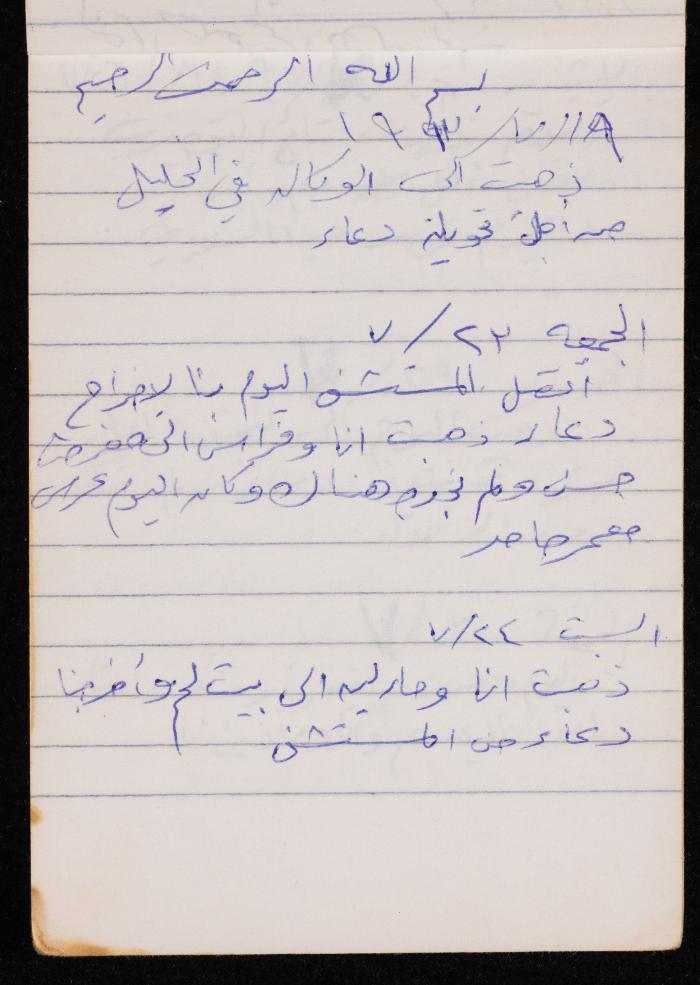 بسم الله الرحمن الرحيم
١٨/٧/١٩٩٣
ذهبت الى الوكاله في الخليل
من أجل تحويلة دعاء
الجمعه ٢٣/٧
أتصل المستشفى اليوم بنا لاخراج
دعاء ذهبت انا وفراس الى
حسن ولم نجده هناك وكان اليوم عرس
معمر حامد
السبت ٢٤/٧
ذهبت انا ومارليه الى بيت لحم وأخرجنا
دعاء من المستشفى